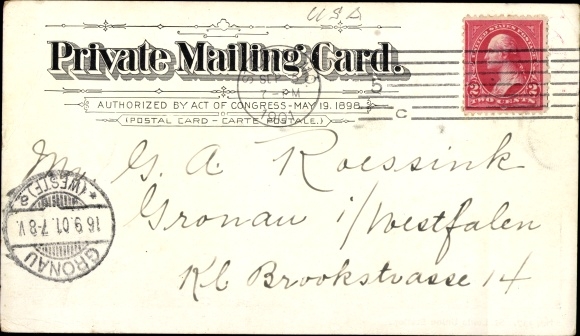 USA
Private Mailing Card.
AUTHORIZED BY ACT OF CONGRESS-MAY 19, 1898.
(POSTAL CARD - CARTE POSTALE.)
SEP
7-PM
1901
5
C
UNITED STATES POSTAGE
2 2
TWO CENTS
Mr. G. A. Roessink
Gronau i/Westfalen
Kl Brookstrasse 14
*(WESTF.)a
16.9.01.7-8V.
GRONAU